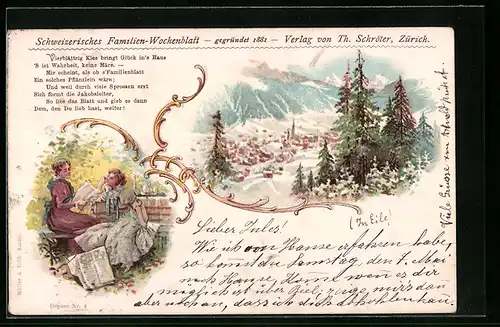 Schweizerisches Familien-Wochenblatt — gegründet 1881 — Verlag von Th. Schröter, Zürich.
Vierblättrig Klee bringt Glück in's Haus
'S ist Wahrheit, keine Märe. —
Mir scheint, als ob s'Familienblatt
Ein solches Pflänzlein wäre;
Und weil durch viele Sprossen erst
Sich formt die Jakobsleiter,
So lies das Blatt und gieb es dann
Dem, den Du lieb hast, weiter!
(In Eile)
Lieber Jules!
Wie ich von Hause erfahren habe,
so kommst du Samstag, den 7. Mai
nach Hause, Komm wenn es dir
möglich ist über Biel, zeige mir's dann
aber an, dass ich dich abholen kann.
Viele Grüsse
Müller & Trüb, Aarau.
Dépose Nr. 4